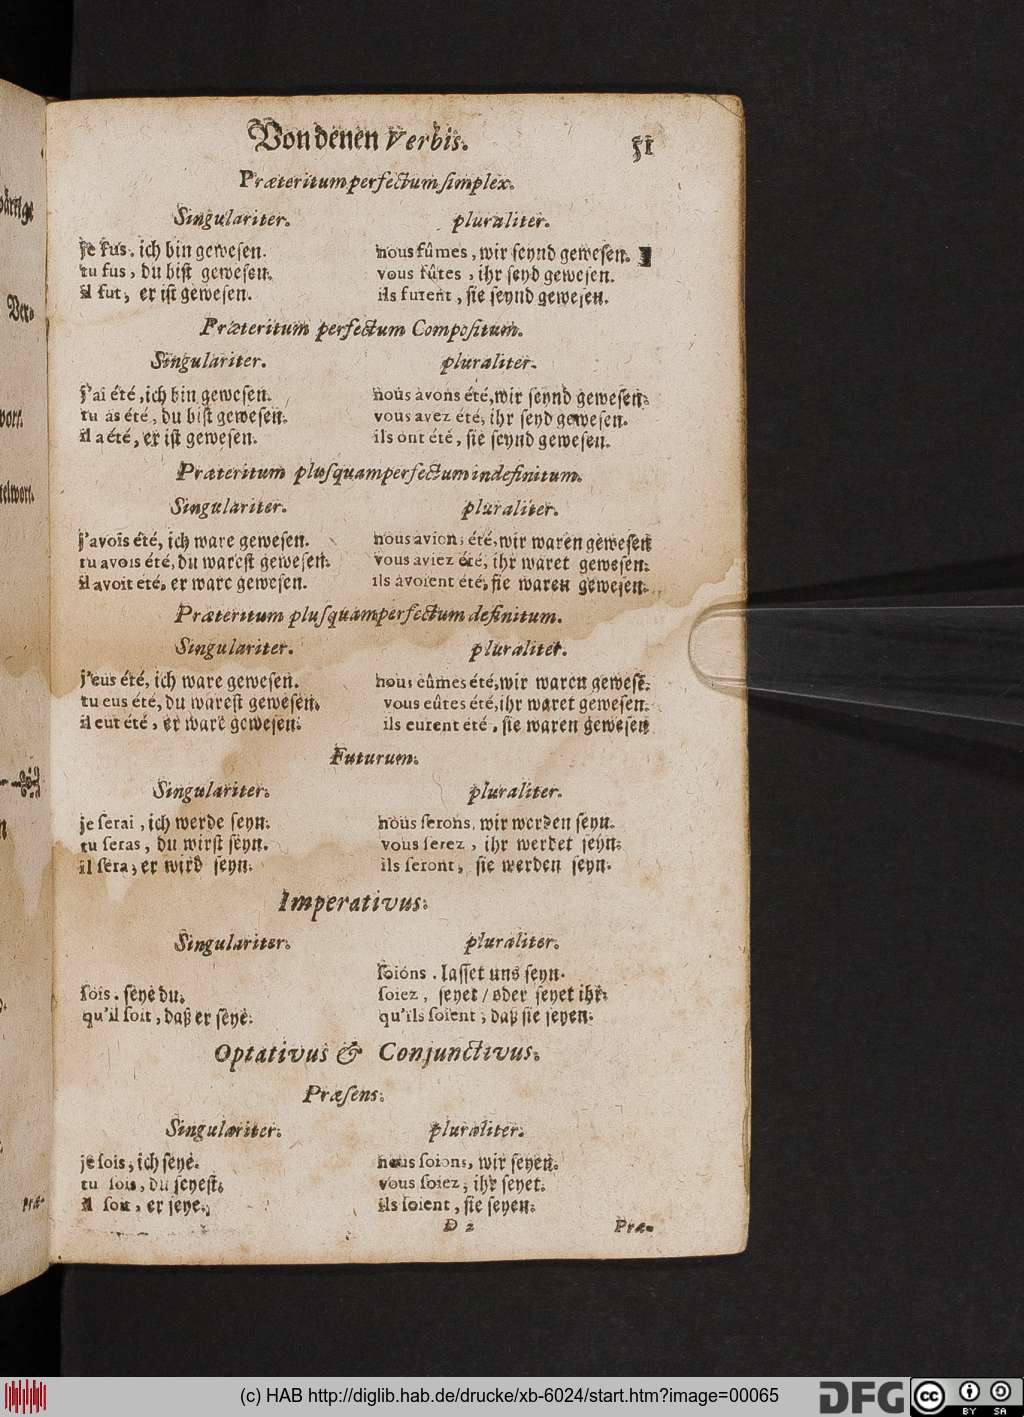 Von denen Verbis. 51
Præteritum perfectum ſimplex.
Singulariter. pluraliter.
je fus, ich bin geweſen. nous fûmes, wir ſeynd geweſen.
tu fus, du biſt geweſen. vous fûtes, ihr ſeyd geweſen.
il fut, er iſt geweſen. ils furent, ſie ſeynd geweſen.
Præteritum perfectum Compoſitum.
Singulariter. pluraliter.
j'ai été, ich bin geweſen. nous avons été, wir ſeynd geweſen.
tu as été, du biſt geweſen. vous avez été, ihr ſeyd geweſen.
il a été, er iſt geweſen. ils ont été, ſie ſeynd geweſen.
Præteritum pluſquamperfectum indefinitum.
Singulariter. pluraliter.
j'avois été, ich ware geweſen. nous avions été, wir waren geweſen
tu avois été, du wareſt geweſen. vous aviez été, ihr waret geweſen.
il avoit été, er ware geweſen. ils avoient été, ſie waren geweſen.
Præteritum pluſquamperfectum definitum.
Singulariter. pluraliter.
j'eus été, ich ware geweſen. nous eûmes été, wir waren geweſẽ.
tu eus été, du wareſt geweſen. vous eûtes été, ihr waret geweſen.
il eut été, er ware geweſen. ils eurent été, ſie waren geweſen
Futurum.
Singulariter. pluraliter.
je ſerai, ich werde ſeyn. nous ſerons, wir werden ſeyn.
tu ſeras, du wirſt ſeyn. vous ſerez, ihr werdet ſeyn.
il ſera, er wird ſeyn. ils ſeront, ſie werden ſeyn.
Imperativus.
Singulariter. pluraliter.
ſoions. laſſet uns ſeyn.
ſois. ſeye du. ſoiez, ſeyet / oder ſeyet ihr.
qu'il ſoit, daß er ſeye. qu'ils ſoient, daß ſie ſeyen.
Optativus & Conjunctivus.
Præſens.
Singulariter. pluraliter.
je ſois, ich ſeye. nous ſoions, wir ſeyen.
tu ſois, du ſeyeſt. vous ſoiez, ihr ſeyet.
il ſoit, er ſeye. ils ſoient, ſie ſeyen.
D 2 Præ-
(c) HAB http://diglib.hab.de/drucke/xb-6024/start.htm?image=00065
DFG
cc BY SA